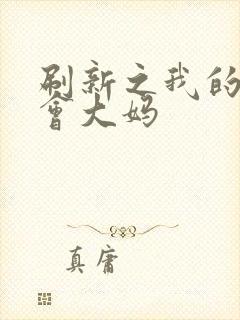 刷新之我的
會大妈
真庸